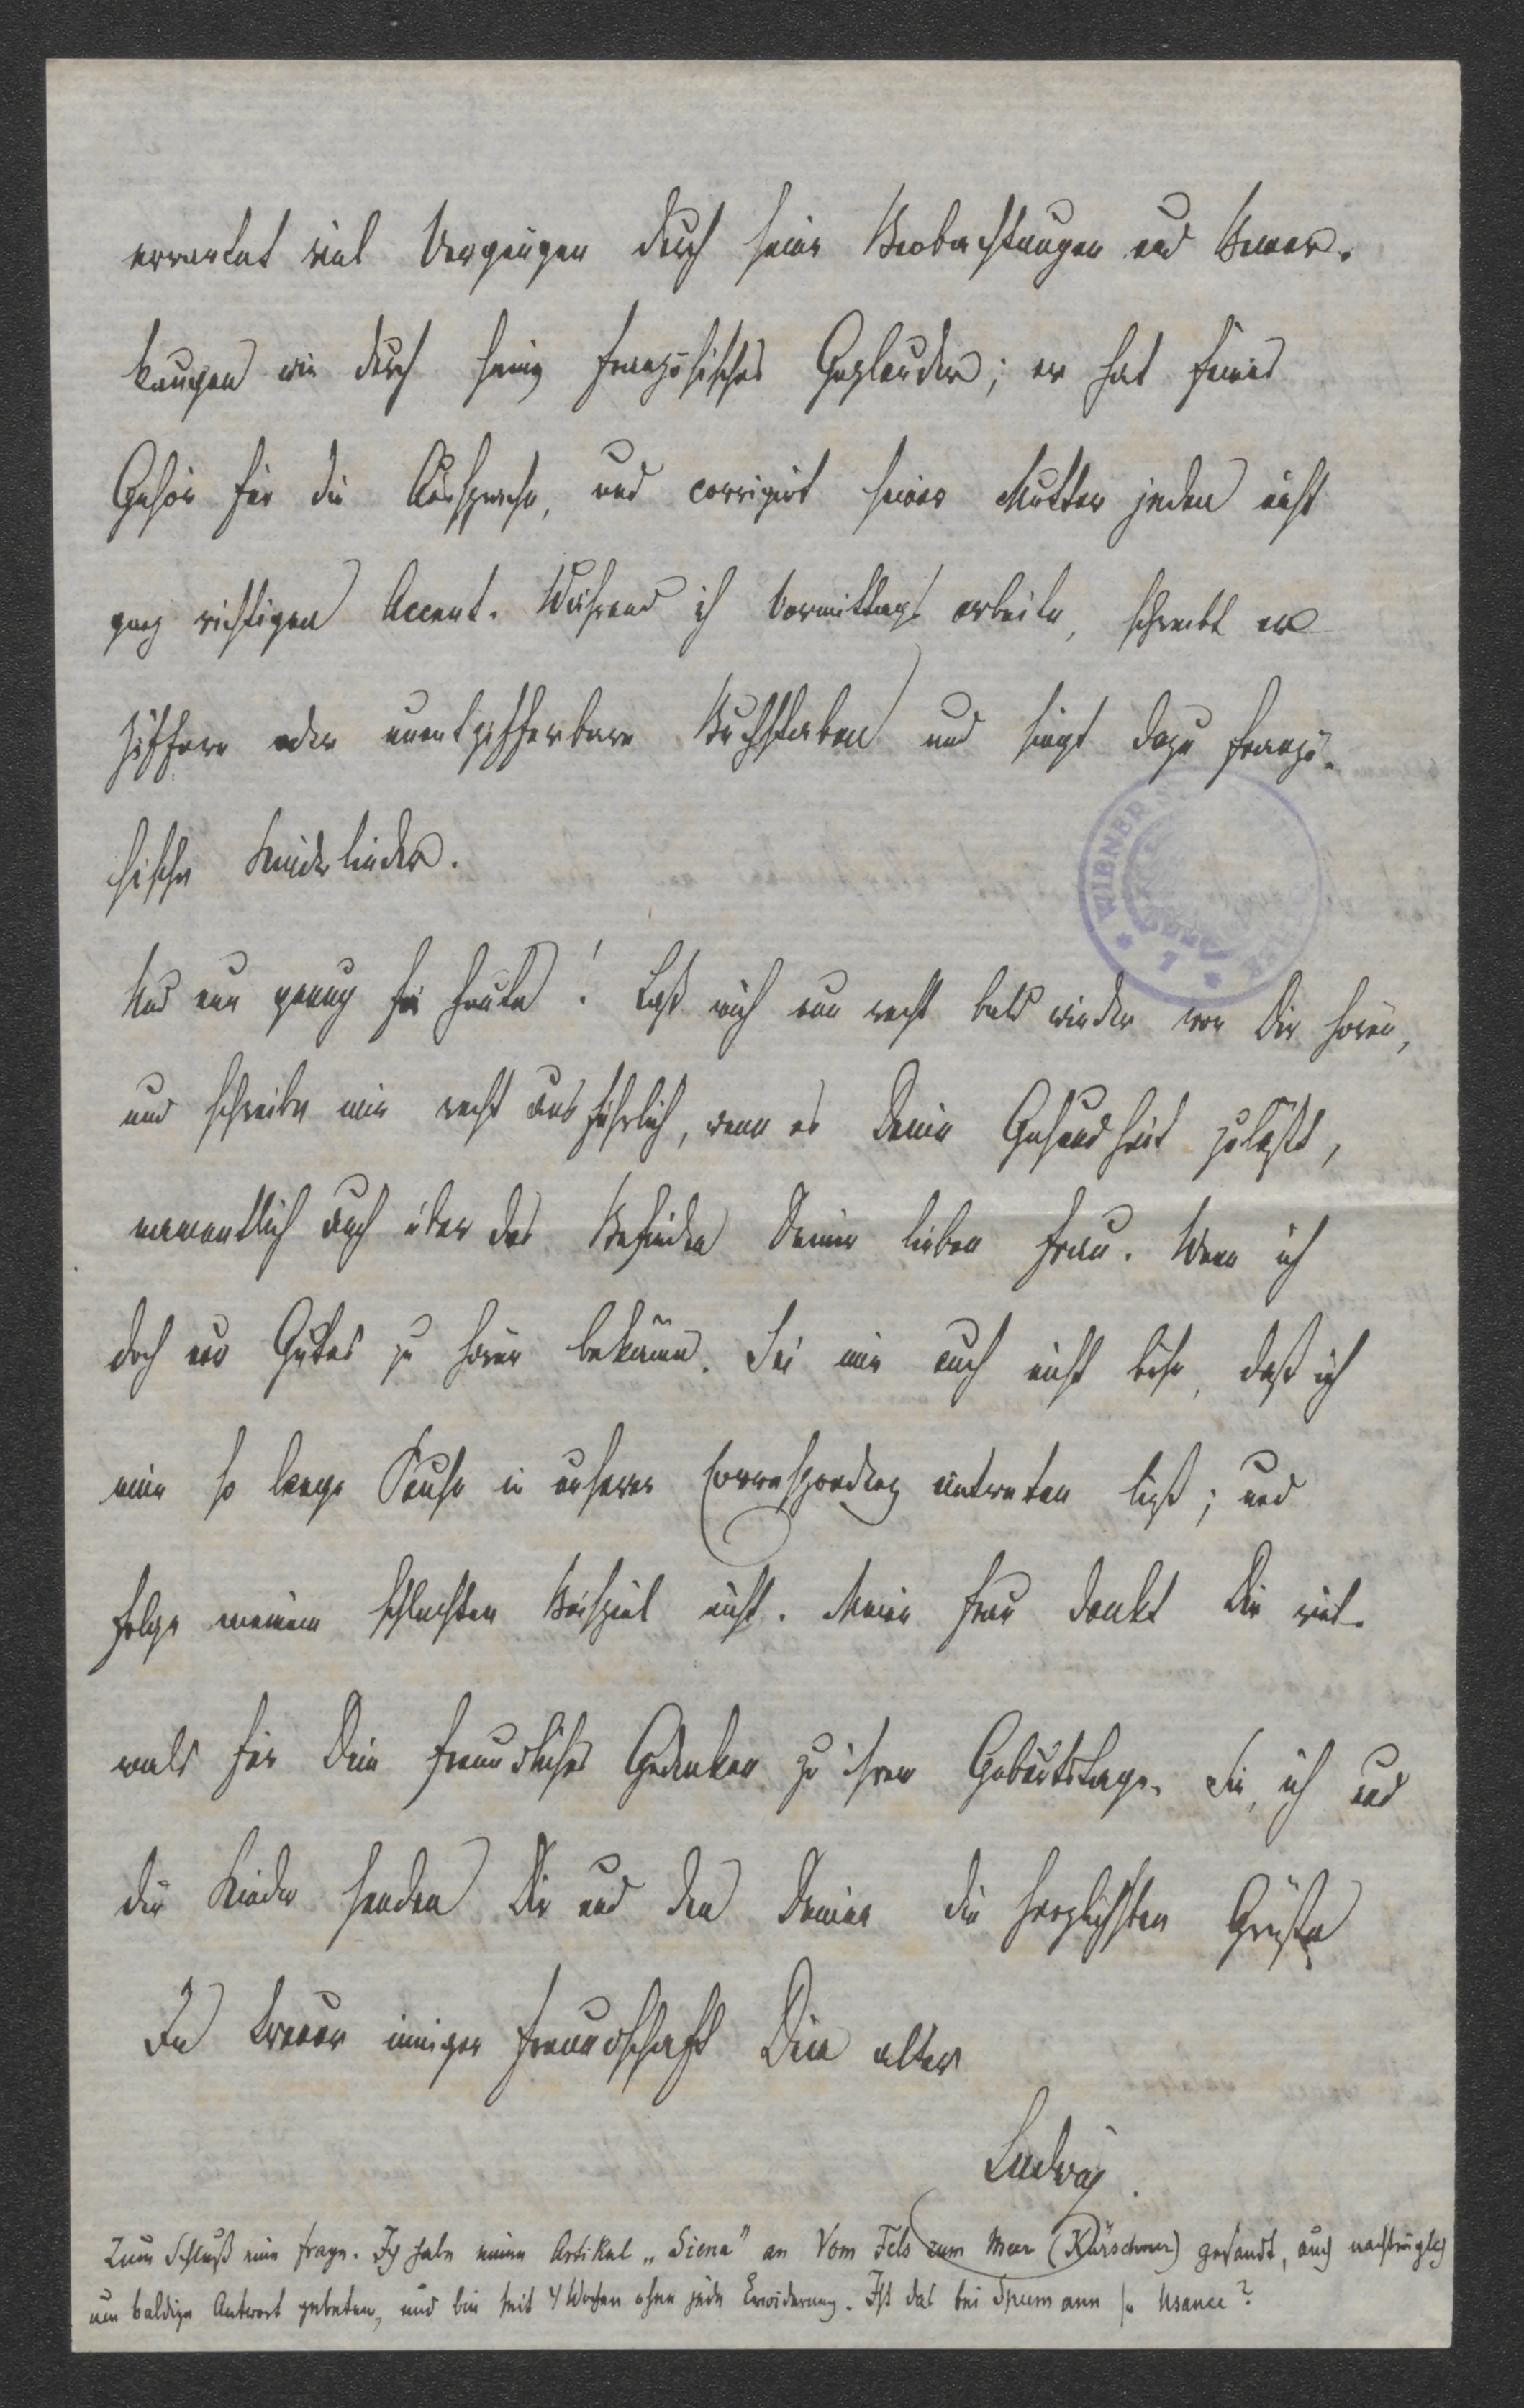 erwartet viel Vergnügen durch seine Beobachtungen und Bemer-
kungen wie durch sein französisches Geplauder; er hat feines
Gehör für die Aussprache, und corrigirt seiner Mutter jeden nicht
ganz richtigen Accent. Während ich Vormittags arbeite, schreibt er
Ziffern oder unentzifferbare Buchstaben und singt dazu franzö-
sische Kinderlieder.
WIENER
Und nun genug für heute! Laß mich nun recht bald wieder von Dir hören,
und schreibe mir recht ausführlich, wenn es Deine Gesundheit zuläßt,
namentlich auch über das Befinden Deiner lieben Frau. Wenn ich
doch nur Gutes zu hören bekäme. Sei mir auch nicht böse, daß ich
eine so lange Pause in unserer Correspondenz eintreten ließ; und
folge meinem schlechten Beispiel nicht. Meine Frau dankt Dir viel-
mals für Dein freundliches Gedenken zu ihrem Geburtstage. Sie, ich und
die Kinder senden Dir und den Deinen die herzlichsten Grüße
In treuer inniger Freundschaft Dein alter
Ludwig.
Zum Schluß eine Frage. Ich habe einen Artikel „Siena" an Vom Fels zum Meer (Kürschner) gesandt, auch nachträglich
um baldige Antwort gebeten, und bin seit 4 Wochen ohne jede Erwiderung. Ist das bei Spemann so Usance?